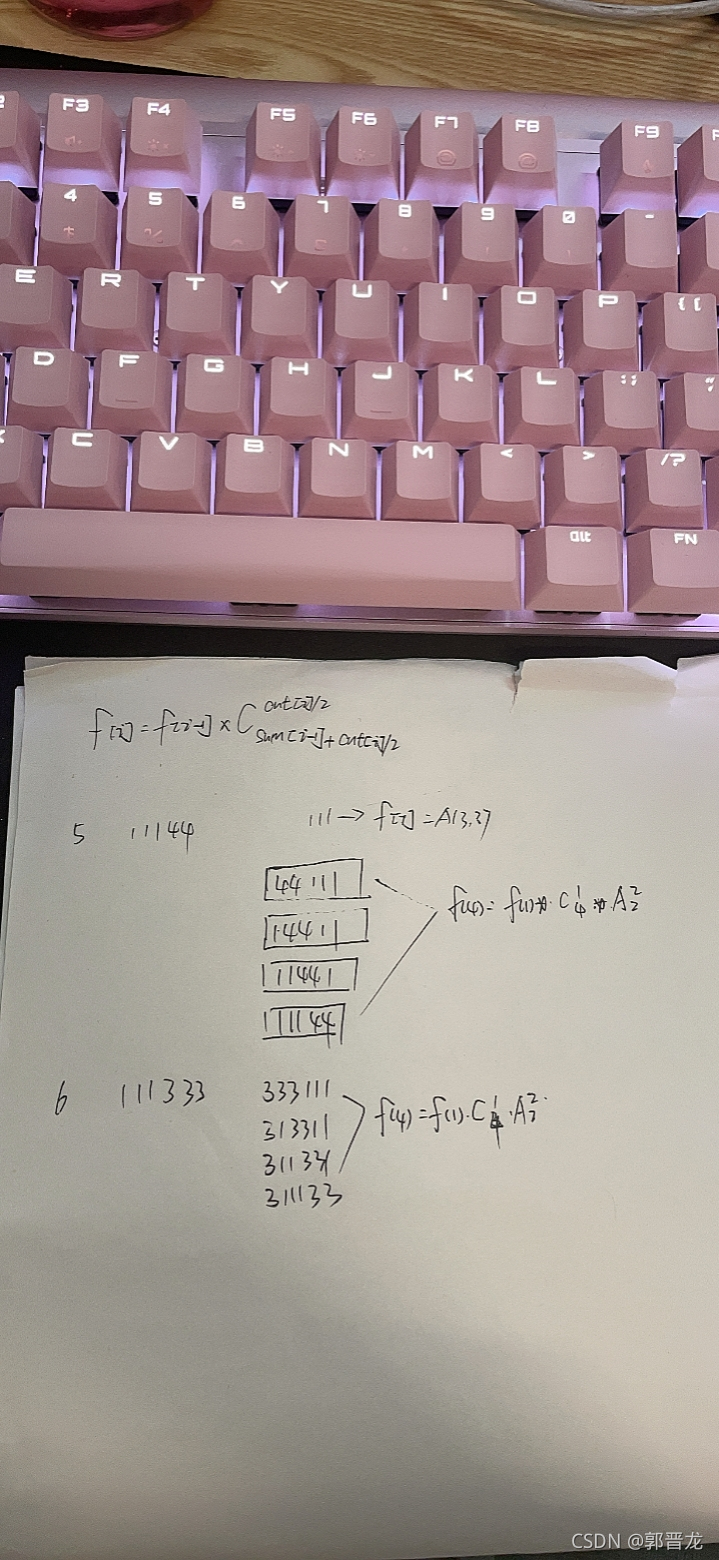 F3 F4 F5 F6 F7 F8 F9
4 5 6 7 8 9 0 -
E R T Y U I O P { [
D F G H J K L ; :
C V B N M < > / ?
alt FN
f[i] = f[i-1] × C
cnt[i]/2
sum[i-1]+cnt[i]/2
5 11144 111 → f[1] = A(3,3)
44111
14411
11441
11144
f(4) = f(1) * C¹₄ * A²₂
6 111333 333111
313311
311331
311133
f(4) = f(1) · C¹₄ · A²₃
CSDN @郭晋龙